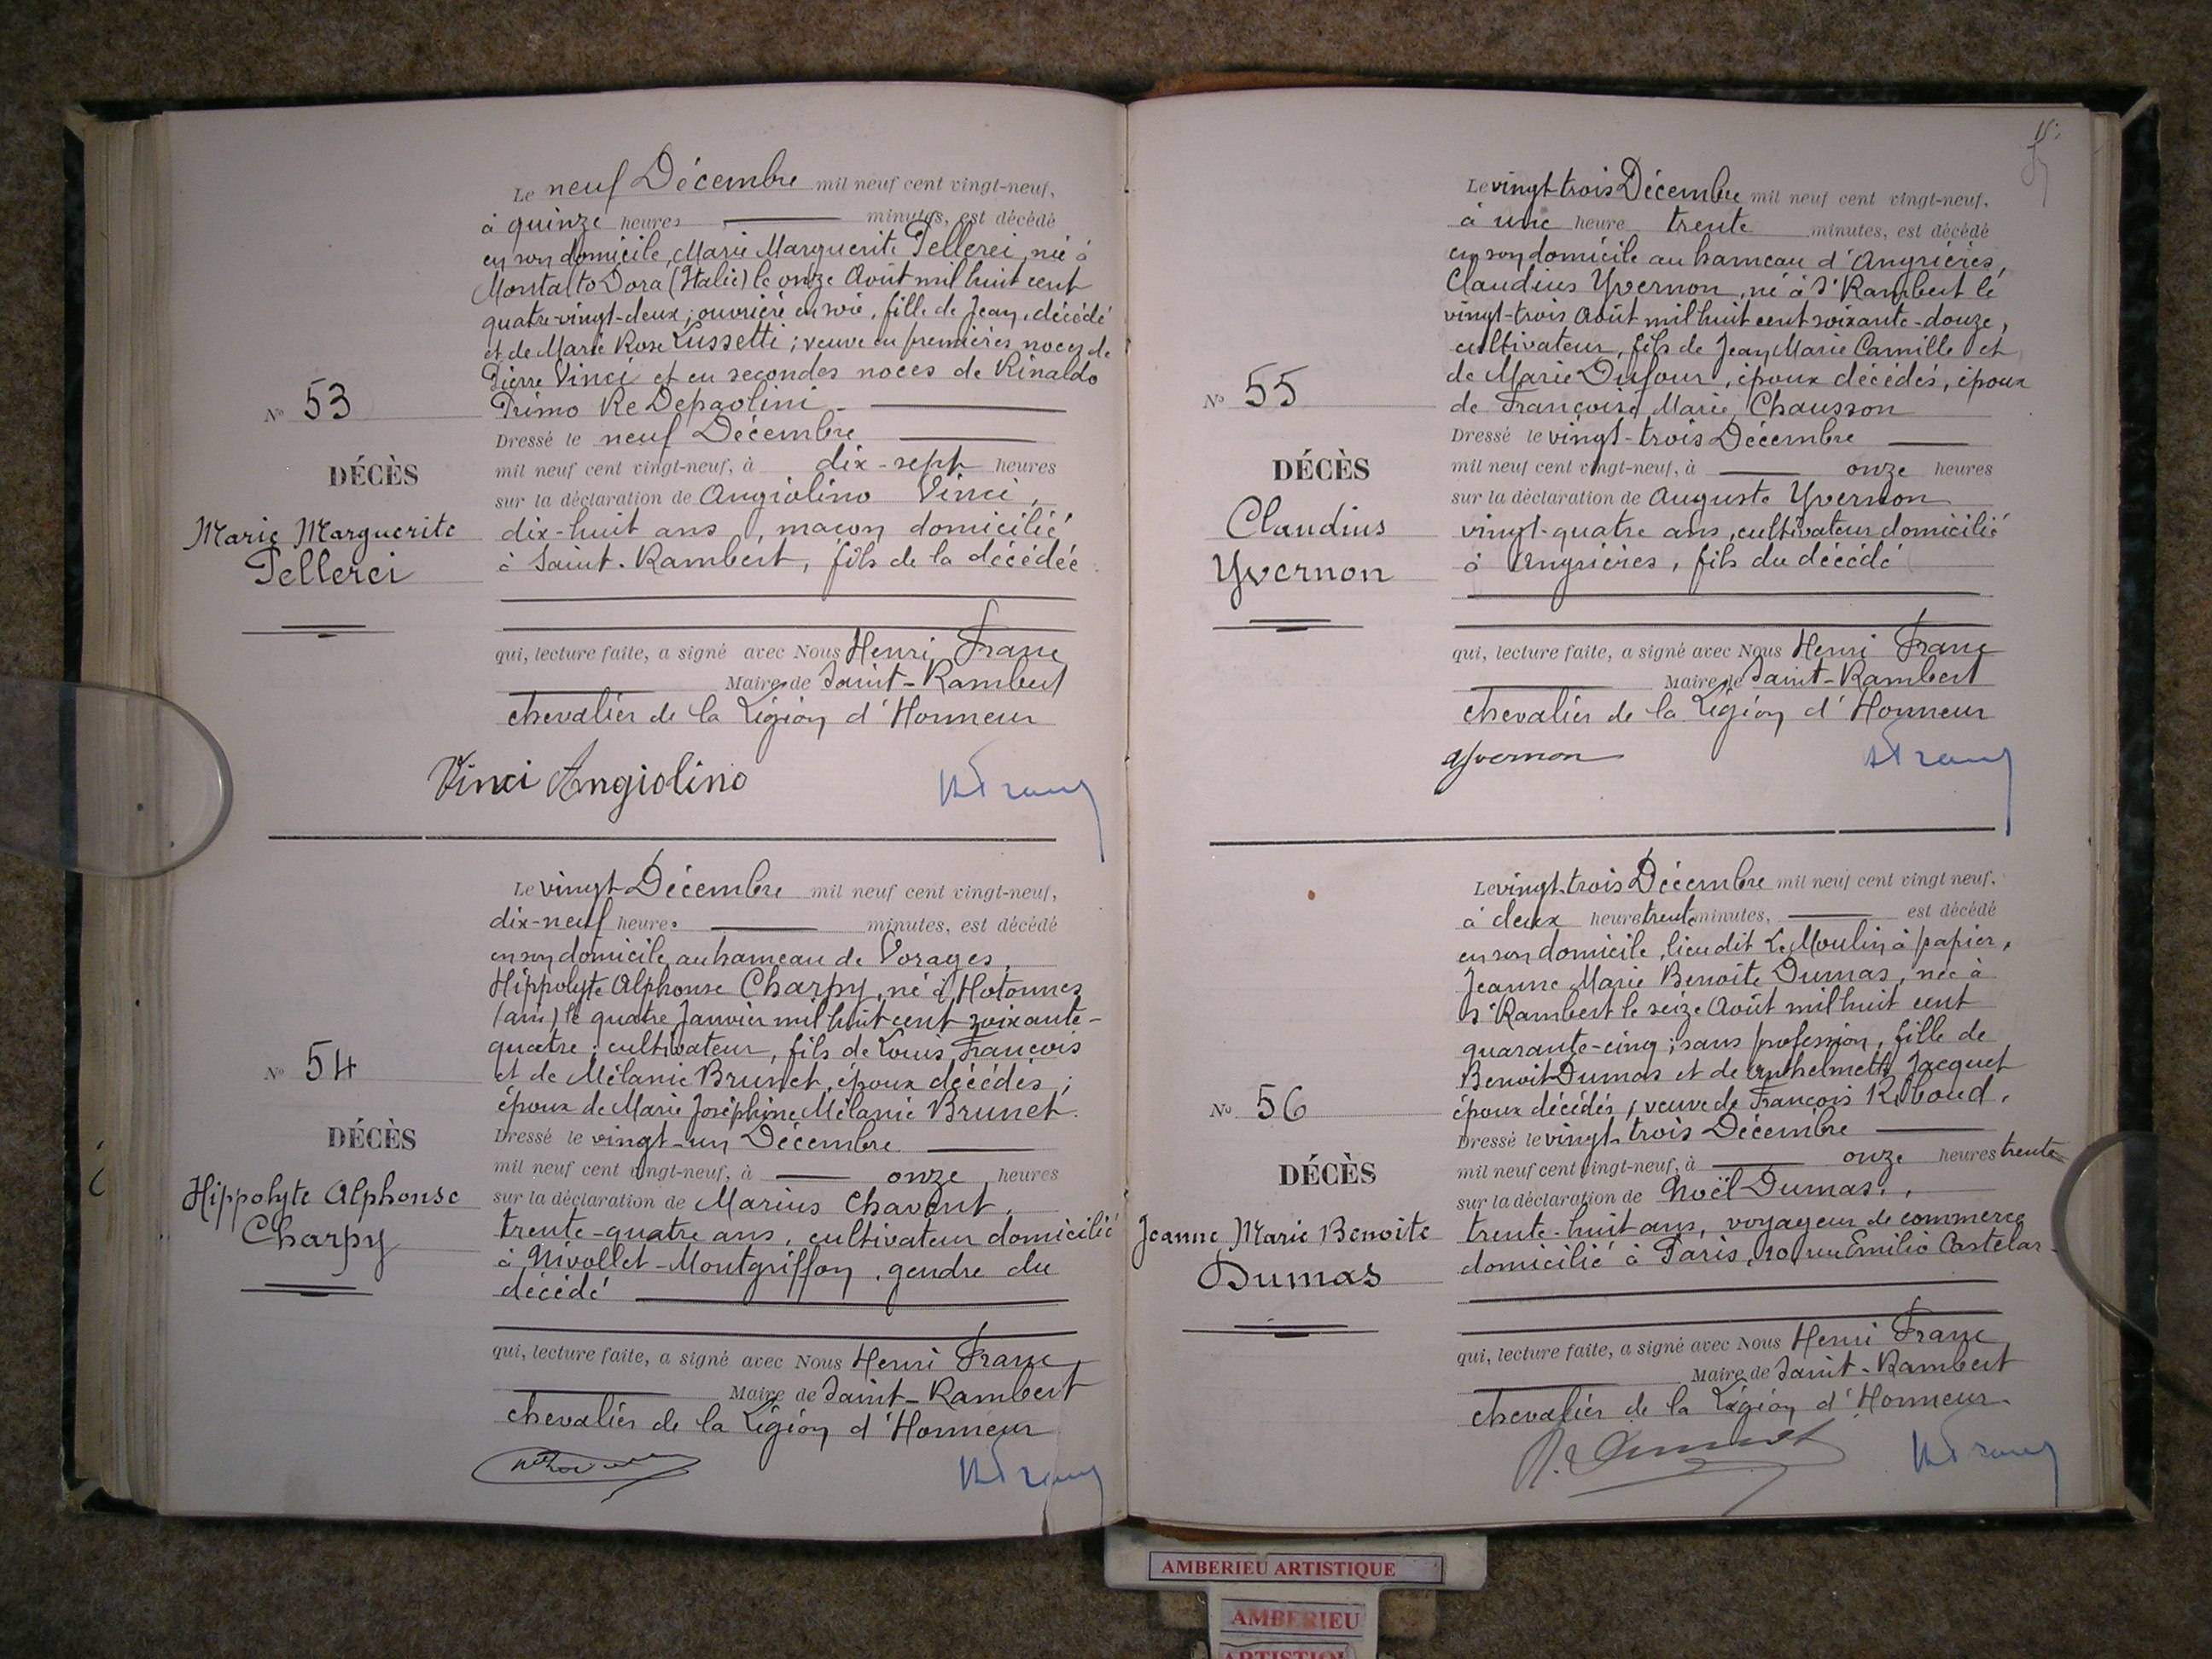 Le neuf Décembre mil neuf cent vingt-neuf,
à quinze heures minutes, est décédé
en son domicile, Marie Marguerite Pellerei, née à
Montalto Dora (Italie) le onze Août mil huit cent
quatre-vingt-deux ; ouvrière en soie, fille de Jean, décédé
et de Marie Rose Lussetti ; veuve en premières noces de
Pierre Vinci et en secondes noces de Rinaldo
Primo Re Depaolini
Dressé le neuf Décembre
mil neuf cent vingt-neuf, à dix-sept heures
sur la déclaration de Angiolino Vinci,
dix-huit ans, maçon domicilié
à Saint-Rambert, fils de la décédée
qui, lecture faite, a signé avec Nous Henri Franc
Maire de Saint-Rambert
chevalier de la Légion d'Honneur
Vinci Angiolino
HFranc
N° 53
DÉCÈS
Marie Marguerite
Pellerei
Le vingt Décembre mil neuf cent vingt-neuf,
dix-neuf heures minutes, est décédé
en son domicile au hameau de Vorages,
Hippolyte Alphonse Charpy, né à Hotonnes
(ain) le quatre Janvier mil huit cent soixante-
quatre ; cultivateur, fils de Louis François
et de Mélanie Brunet, époux décédés ;
époux de Marie Joséphine Mélanie Brunet.
Dressé le vingt-un Décembre
mil neuf cent vingt-neuf, à onze heures
sur la déclaration de Marius Chavent,
trente-quatre ans, cultivateur domicilié
à Nivollet-Montgriffon, gendre du
décédé
qui, lecture faite, a signé avec Nous Henri Franc
Maire de Saint-Rambert
chevalier de la Légion d'Honneur
HFranc
N° 54
DÉCÈS
Hippolyte Alphonse
Charpy
Le vingt-trois Décembre mil neuf cent vingt-neuf,
à une heure trente minutes, est décédé
en son domicile au hameau d'Angrières,
Claudius Yvernon, né à St Rambert le
vingt-trois Août mil huit cent soixante-douze,
cultivateur, fils de Jean Marie Camille et
de Marie Dufour, époux décédés, époux
de Françoise Marie Chausson
Dressé le vingt-trois Décembre
mil neuf cent vingt-neuf, à onze heures
sur la déclaration de Auguste Yvernon
vingt-quatre ans, cultivateur domicilié
à Angrières, fils du décédé
qui, lecture faite, a signé avec Nous Henri Franc
Maire de Saint-Rambert
chevalier de la Légion d'Honneur
Yvernon
HFranc
N° 55
DÉCÈS
Claudius
Yvernon
Le vingt-trois Décembre mil neuf cent vingt neuf,
à deux heure trente minutes, est décédé
en son domicile, lieu dit Le Moulin à papier,
Jeanne Marie Benoite Dumas, née à
St Rambert le seize Août mil huit cent
quarante-cinq ; sans profession, fille de
Benoit Dumas et de Jacquet
époux décédés ; veuve de François Riboud.
Dressé le vingt-trois Décembre
mil neuf cent vingt-neuf, à onze heures trente
sur la déclaration de Noël Dumas,
trente-huit ans, voyageur de commerce
domicilié à Paris, 10, rue Emilio Castelar
qui, lecture faite, a signé avec Nous Henri Franc
Maire de Saint-Rambert
chevalier de la Légion d'Honneur
HFranc
N° 56
DÉCÈS
Jeanne Marie Benoite
Dumas
AMBERIEU ARTISTIQUE
AMBERIEU